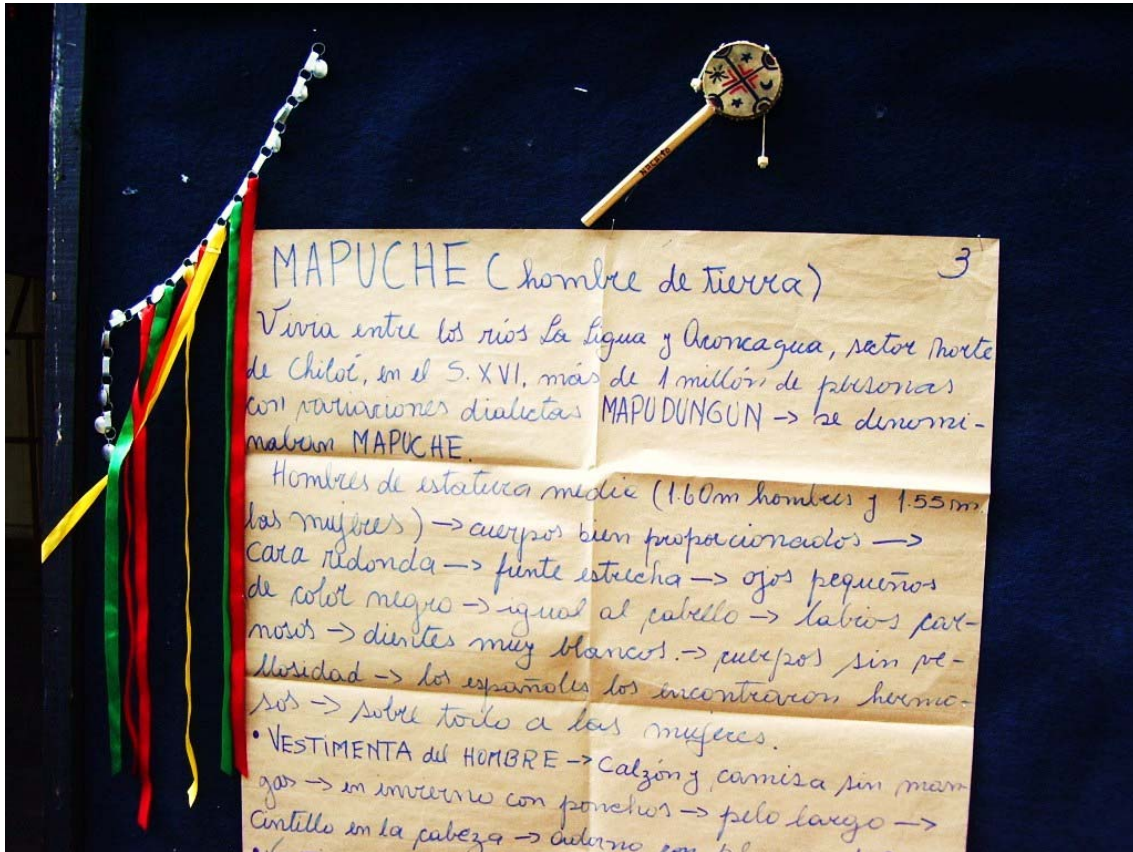 3
MAPUCHE (hombre de tierra)
Vivia entre los ríos La Ligua y Aconcagua, sector norte
de Chiloé, en el S. XVI, más de 1 millón de personas
con variaciones dialectas MAPUDUNGUN → se denomi-
naban MAPUCHE.
Hombres de estatura média (1.60m hombres y 1.55m
las mujeres) → cuerpos bien proporcionados →
cara redonda → frente estrecha → ojos pequeños
de color negro → igual al cabello → labios car-
nosos → dientes muy blancos. → cuerpos sin ve-
llosidad → los españoles los encontraron hermo-
sos → sobre todo a las mujeres.
• VESTIMENTA del HOMBRE → Calzón y camisa sin man
gas → en invierno con ponchos → pelo largo →
Cintillo en la cabeza → adorno con